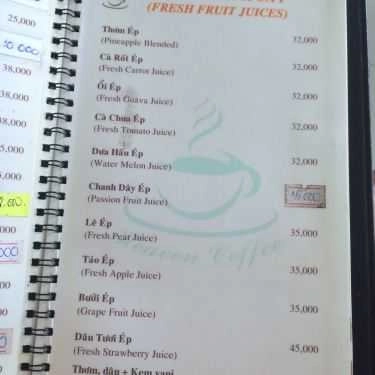 25,000
50.000
38,000
38,000
38,000
38,000
(FRESH FRUIT JUICES)
Thơm Ép
(Pineapple Blended) 32,000
Cà Rốt Ép
(Fresh Carrot Juice) 32,000
Ổi Ép
(Fresh Guava Juice) 32,000
Cà Chua Ép
(Fresh Tomato Juice) 32,000
Dưa Hấu Ép
(Water Melon Juice) 32,000
Chanh Dây Ép
(Passion Fruit Juice)
Lê Ép
(Fresh Pear Juice) 35,000
Táo Ép
(Fresh Apple Juice) 35,000
Bưởi Ép
(Grape Fruit Juice) 35,000
Dâu Tươi Ép
(Fresh Strawberry Juice) 45,000
Thơm, dâu + Kem vani
Heaven Coffee